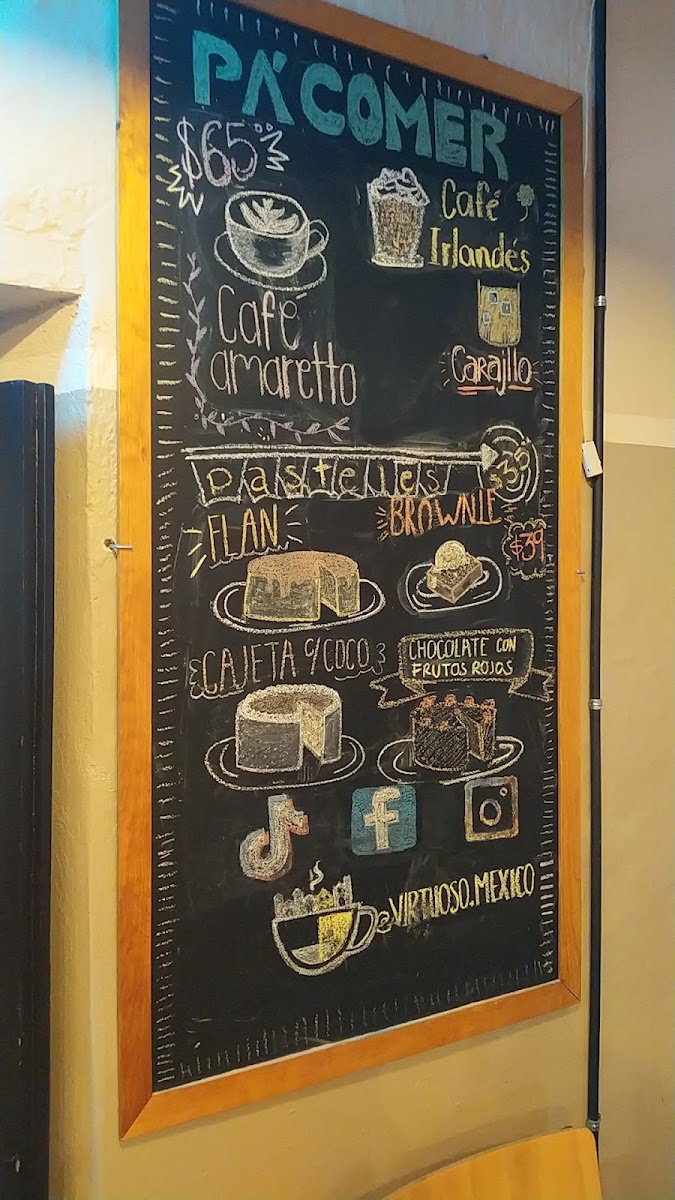 PÁ COMER
$65
Café
Irlandés
Café
amaretto
Carajllo
Pasteles
$35
FLAN
BROWNIE
$39
CAJETA c/COCO
CHOCOLATE CON
FRUTOS ROJOS
@VIRTUOSO.MEXICO